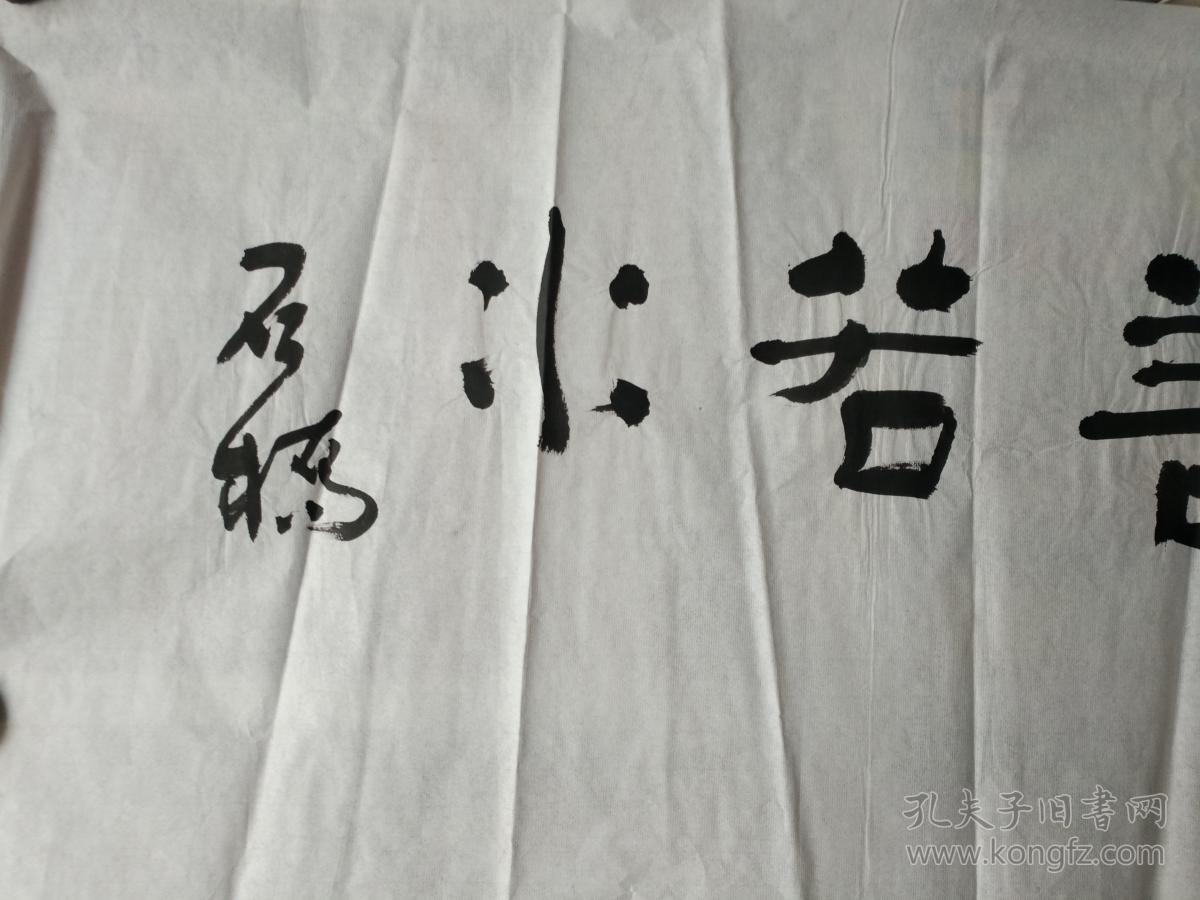 善若水
石
孔夫子旧书网
www.kongfz.com